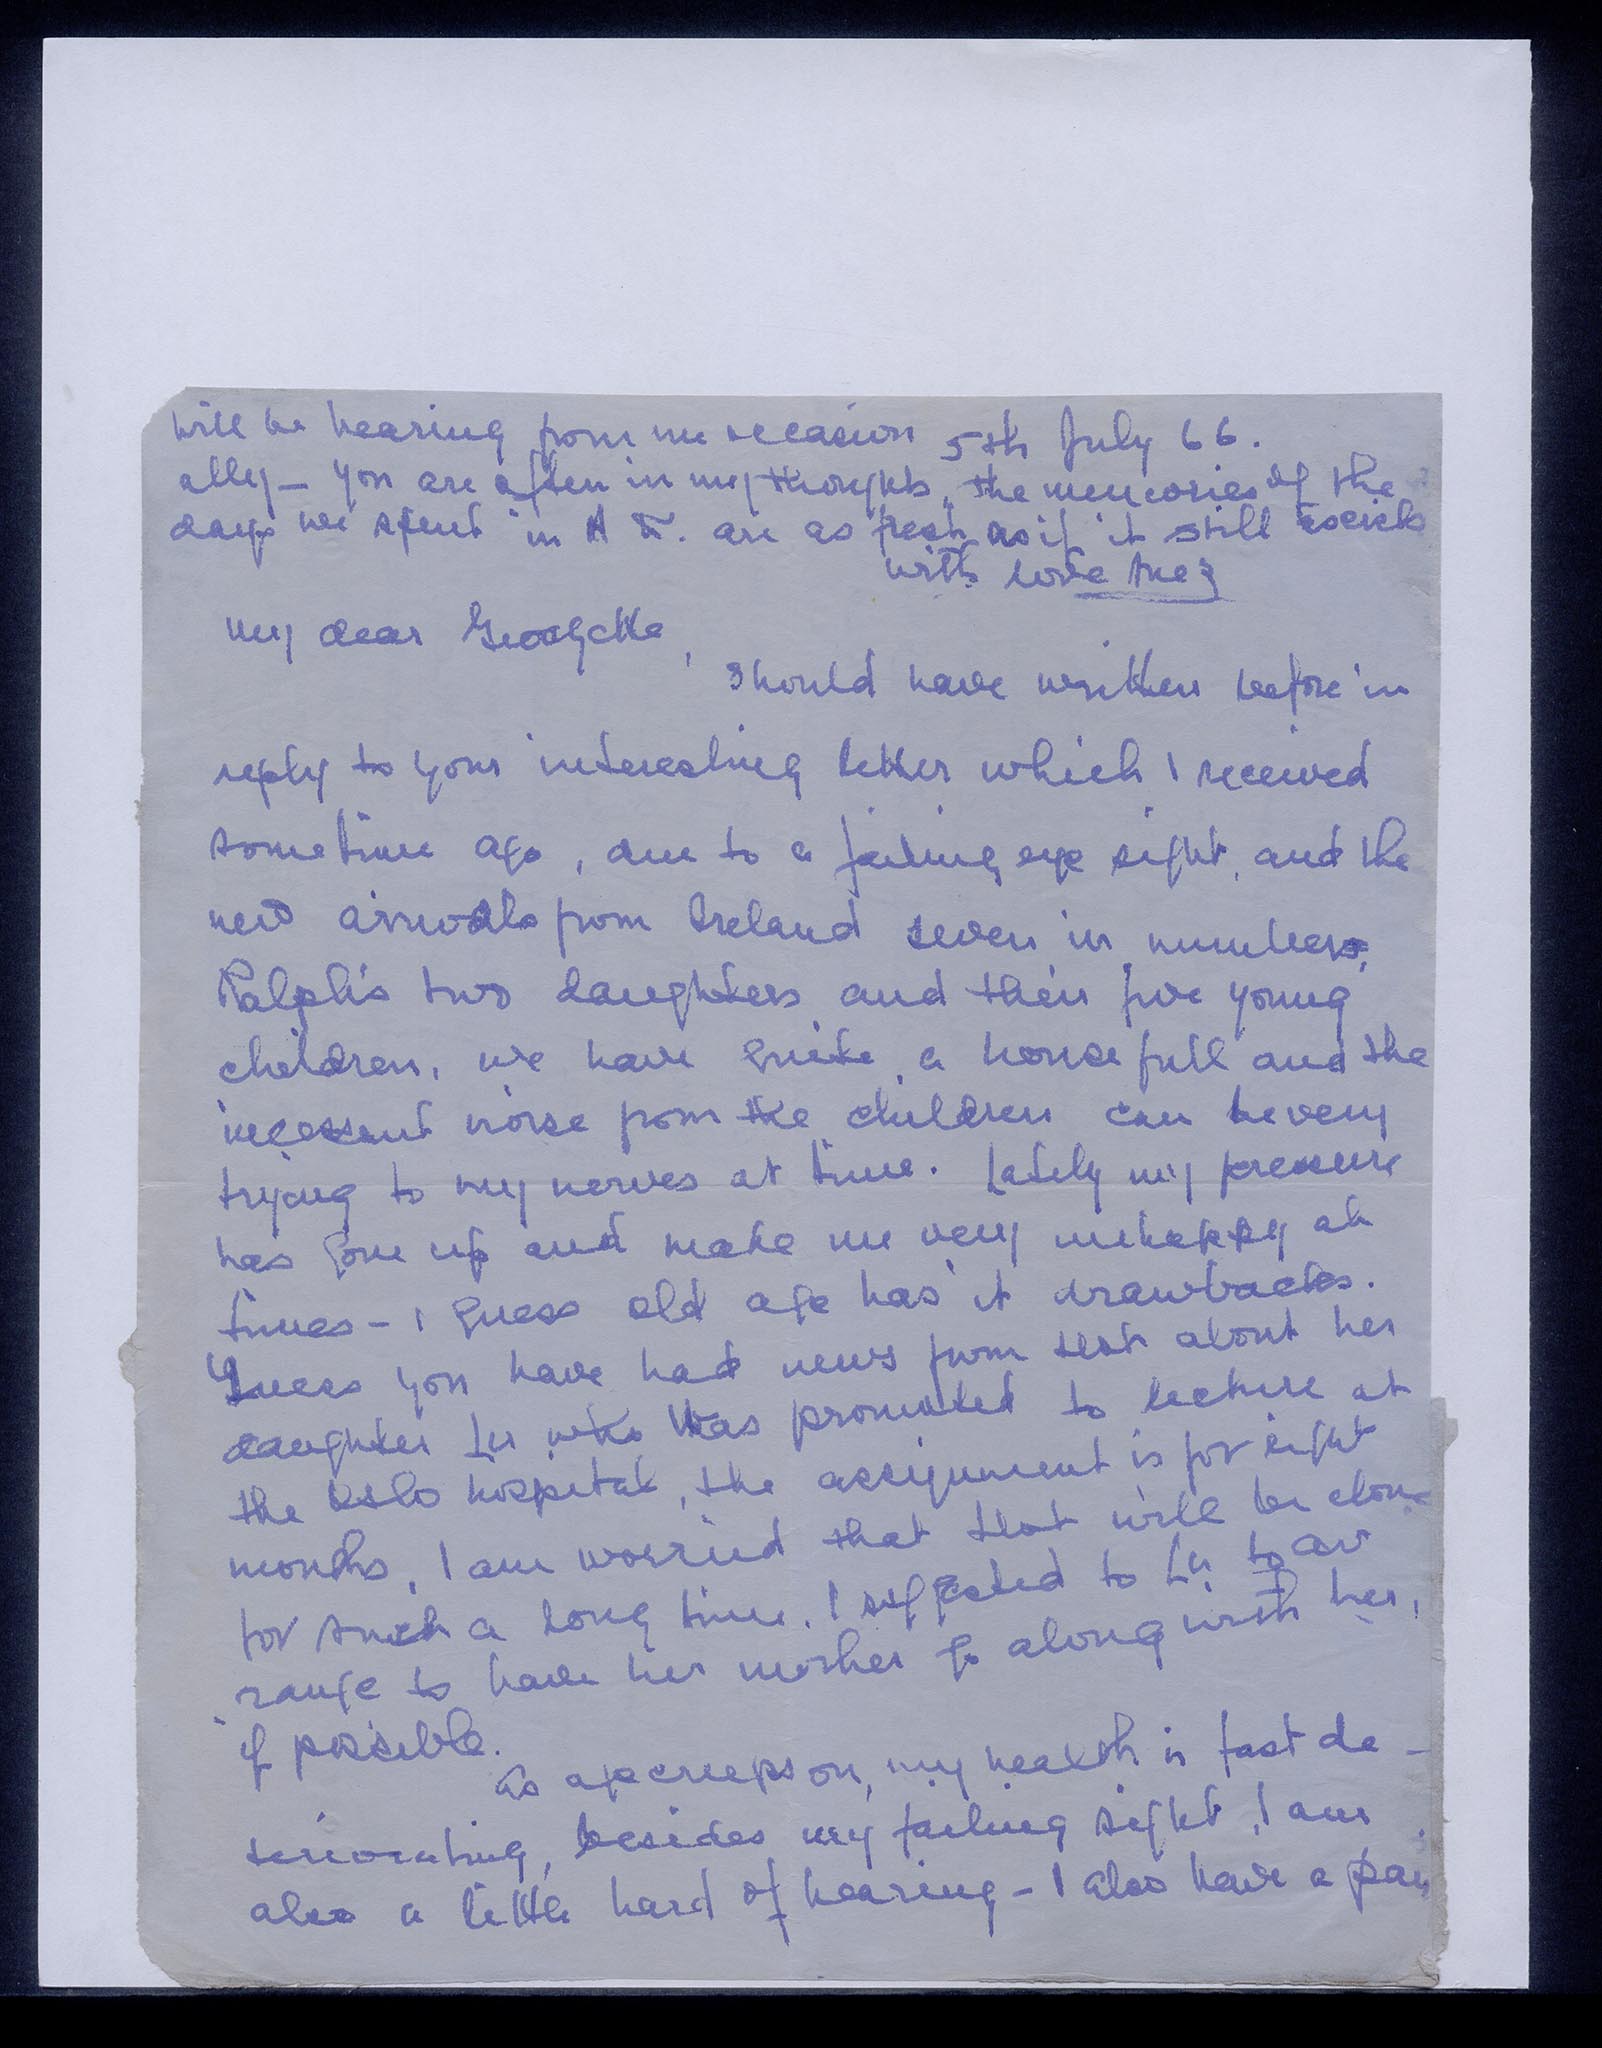 will be hearing from me occasion 5th July 66.
ally – you are often in my thoughts, the memories of the
days we spent in A T. are as fresh as if it still exists
with love
My dear Georgette,
Should have written before in
reply to your interesting letter which I received
sometime ago, due to a failing eye sight, and the
new arrivals from Ireland seven in numbers,
Ralph's two daughters and their five young
children, we have quite a house full and the
incessant noise from the children can be very
trying to my nerves at time. Lately my pressure
has gone up and make me very unhappy at
times – I guess old age has it drawbacks.
Guess you have had news from about her
daughter Lu who was promoted to lecture at
the Oslo hospital, the assignment is for eight
months, I am worried that will be alone
for such a long time. I suggested to Lu to ar
range to have her mother go along with her,
if possible.
As age creeps on, my health is fast de –
teriorating, besides my failing sight, I am
also a little hard of hearing – I also have a pain